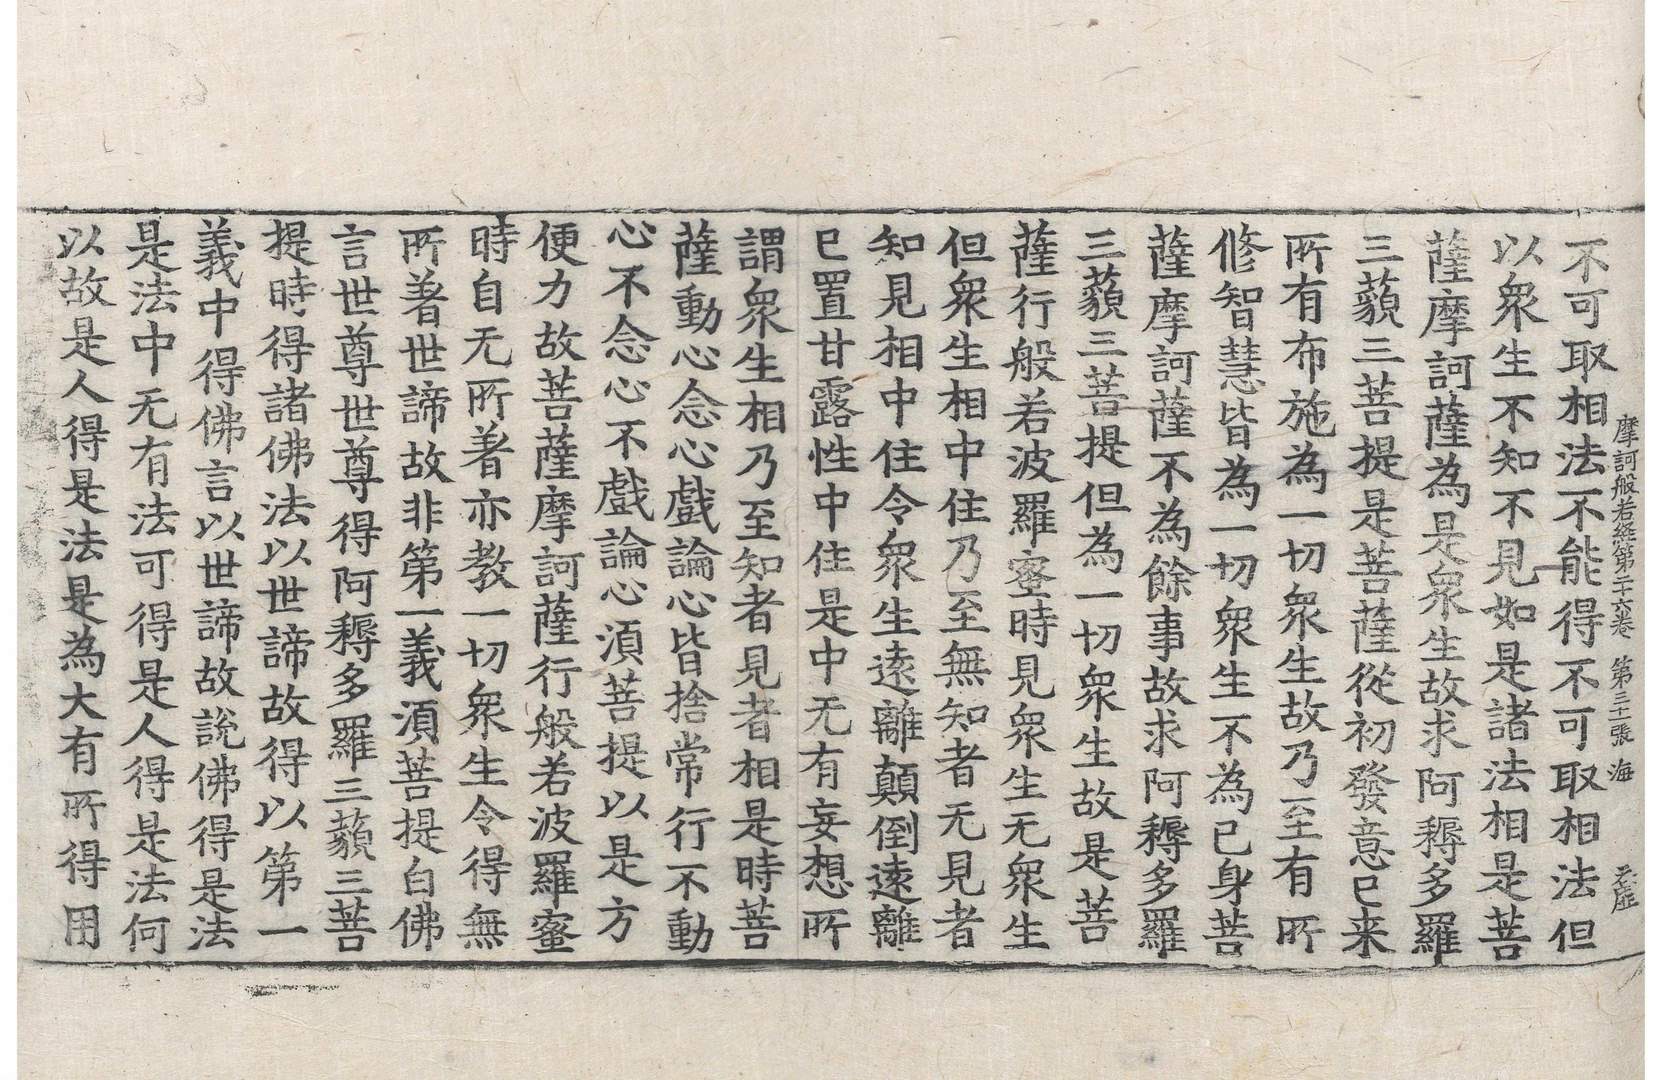 摩訶般若経第二十六卷 第三十一張 海
不可取相法不能得不可取相法但
以衆生不知不見如是諸法相是菩
薩摩訶薩為是衆生故求阿耨多羅
三藐三菩提是菩薩從初發意已来
所有布施為一切衆生故乃至有所
修智慧皆為一切衆生不為已身菩
薩摩訶薩不為餘事故求阿耨多羅
三藐三菩提但為一切衆生故是菩
薩行般若波羅蜜時見衆生无衆生
但衆生相中住乃至無知者无見者
知見相中住令衆生遠離顛倒遠離
已置甘露性中住是中无有妄想所
謂衆生相乃至知者見者相是時菩
薩動心念心戲論心皆捨常行不動
心不念心不戲論心湏菩提以是方
便力故菩薩摩訶薩行般若波羅蜜
時自无所著亦教一切衆生令得無
所著世諦故非第一義湏菩提白佛
言世尊世尊得阿耨多羅三藐三菩
提時得諸佛法以世諦故得以第一
義中得佛言以世諦故說佛得是法
是法中无有法可得是人得是法何
以故是人得是法是為大有所得用